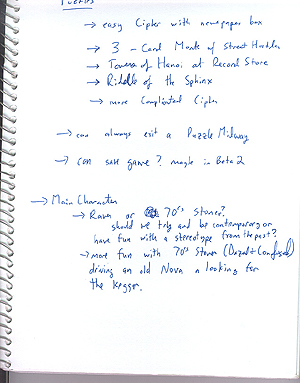 Puzzles
→ easy Cipher with newspaper box
→ 3 - Card Monte of Street Hustler
→ Towers of Hanoi at Record Store
→ Riddle of the Sphinx
→ more Complicated Cipher
→ can always exit a Puzzle Midway
→ can save game? maybe in Beta 2
→ Main Character
→ Raver or 70's Stoner?
should we try and be contemporary or
have fun with a stereotype from the past?
→ more fun with 70's Stoner (Dazed + Confused)
driving an old Nova a looking for
the kegger.